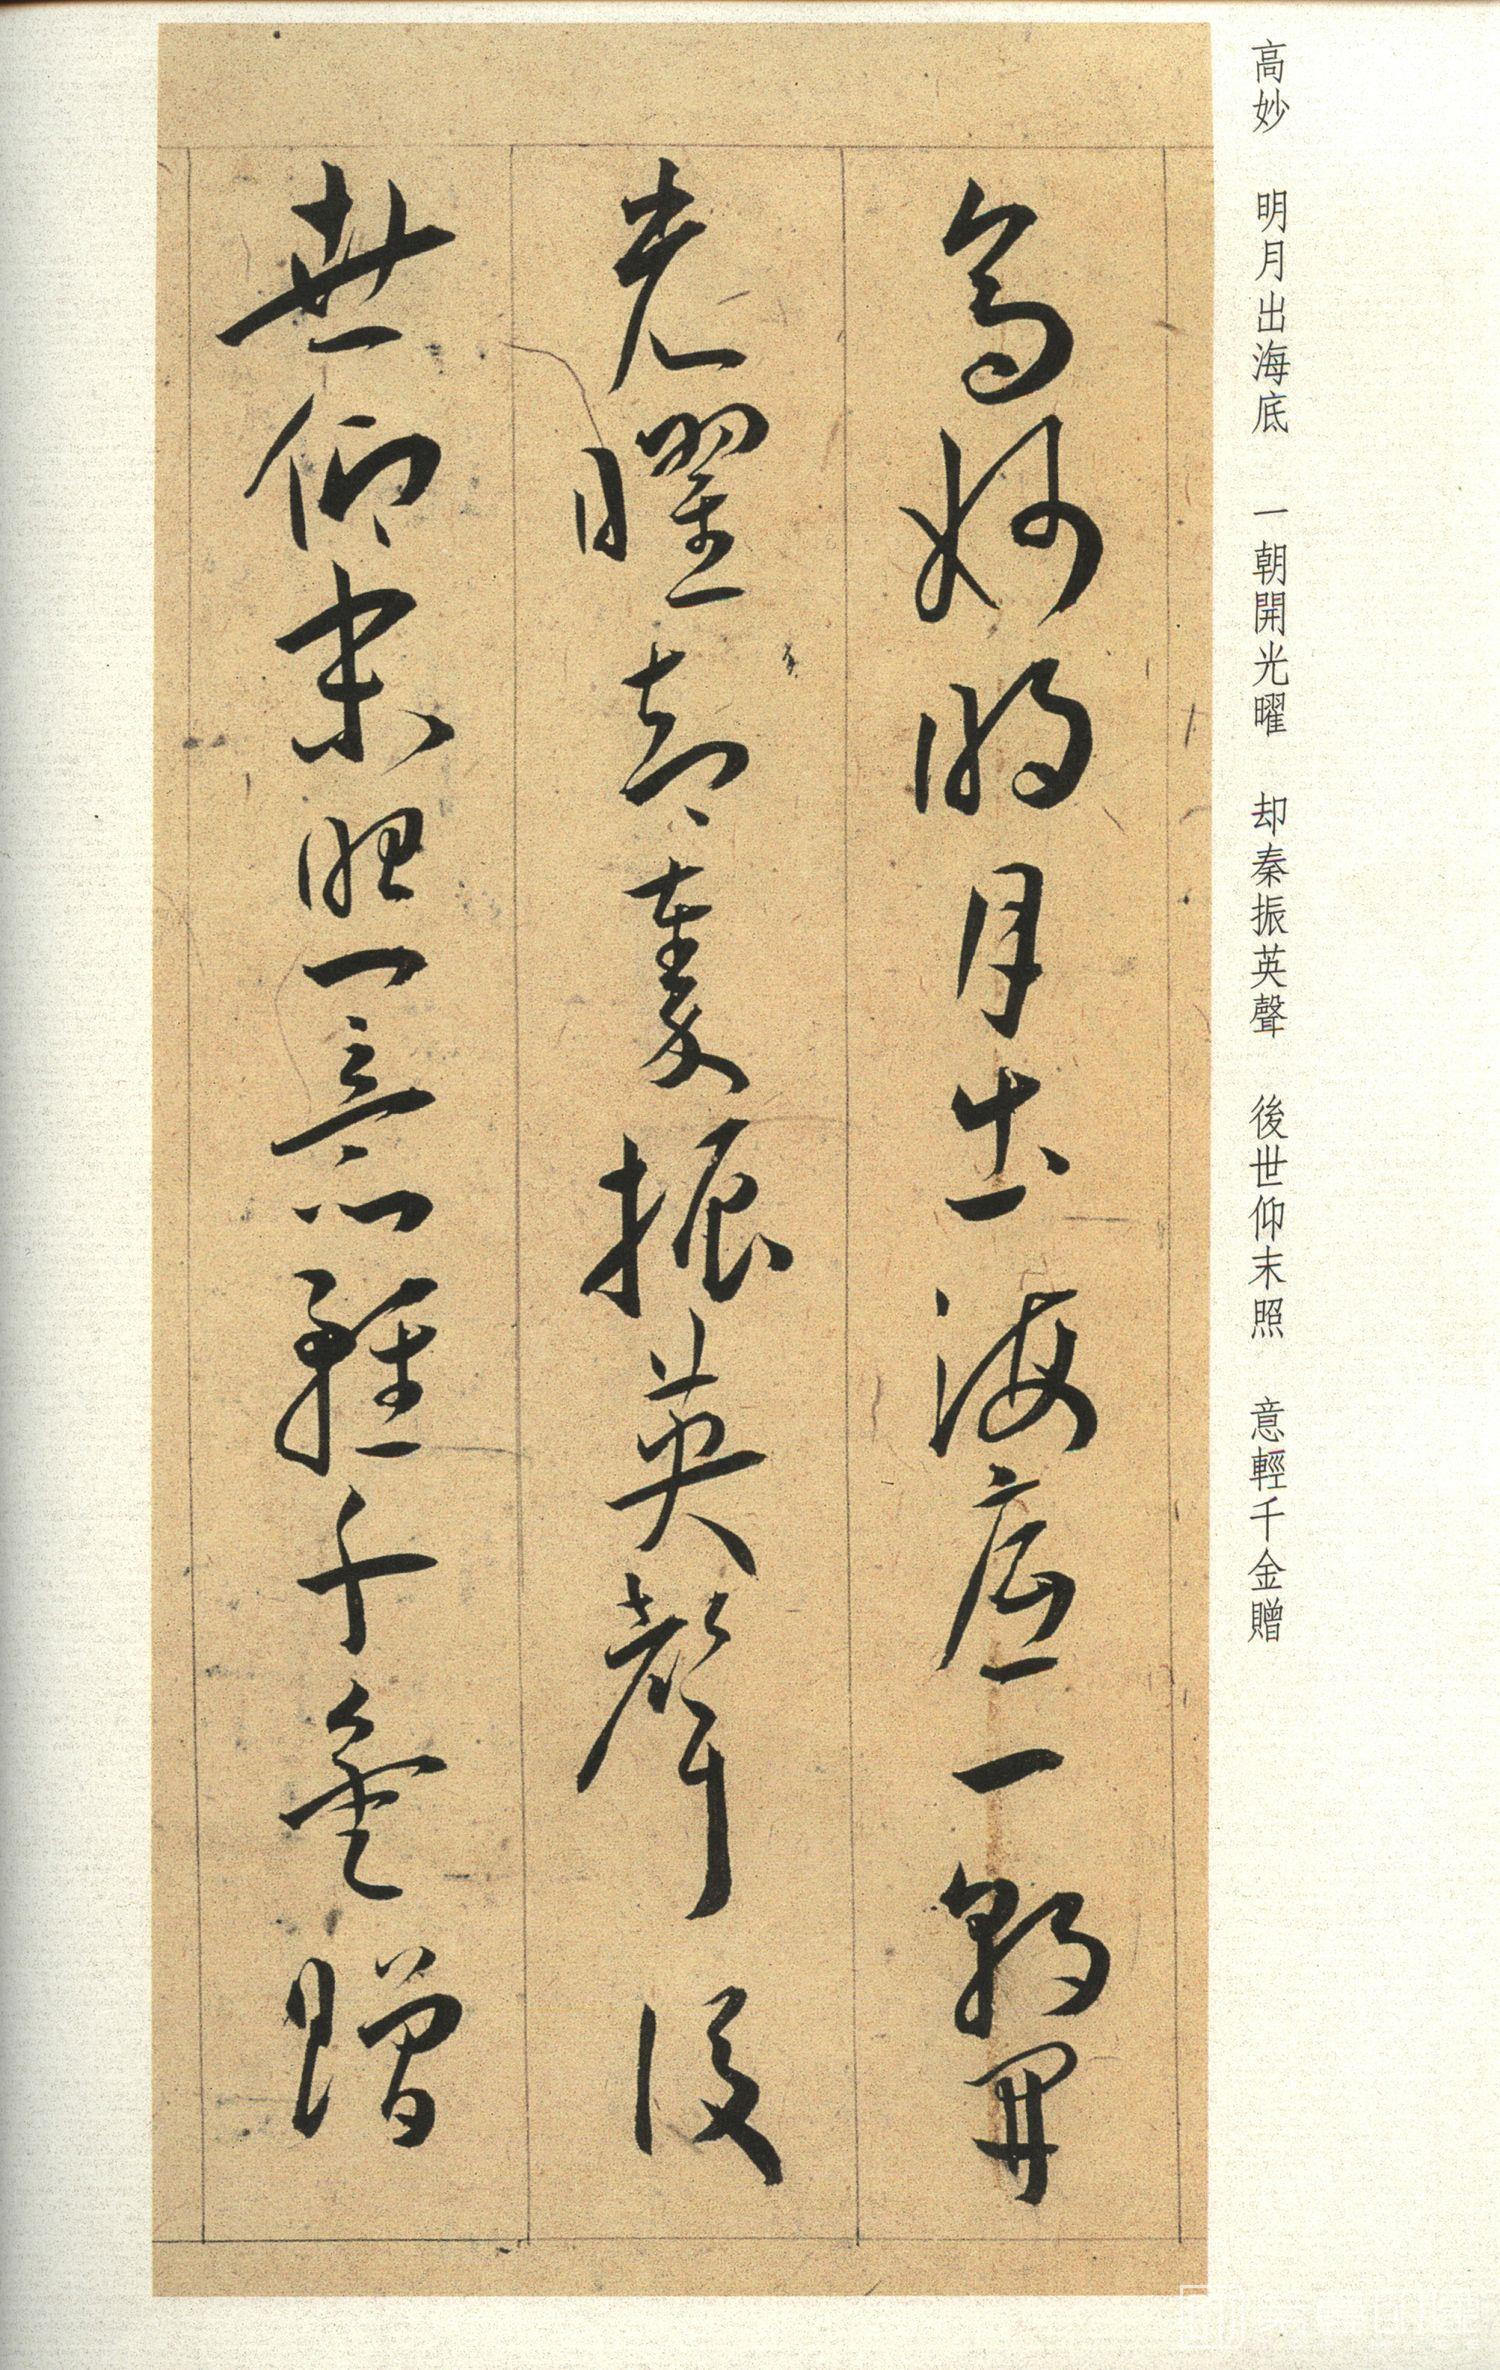 高妙　明月出海底　一朝開光曜　却秦振英聲　後世仰末照　意輕千金贈
高妙明月出海底一朝開
光曜却秦振英聲後
世仰末照意輕千金贈